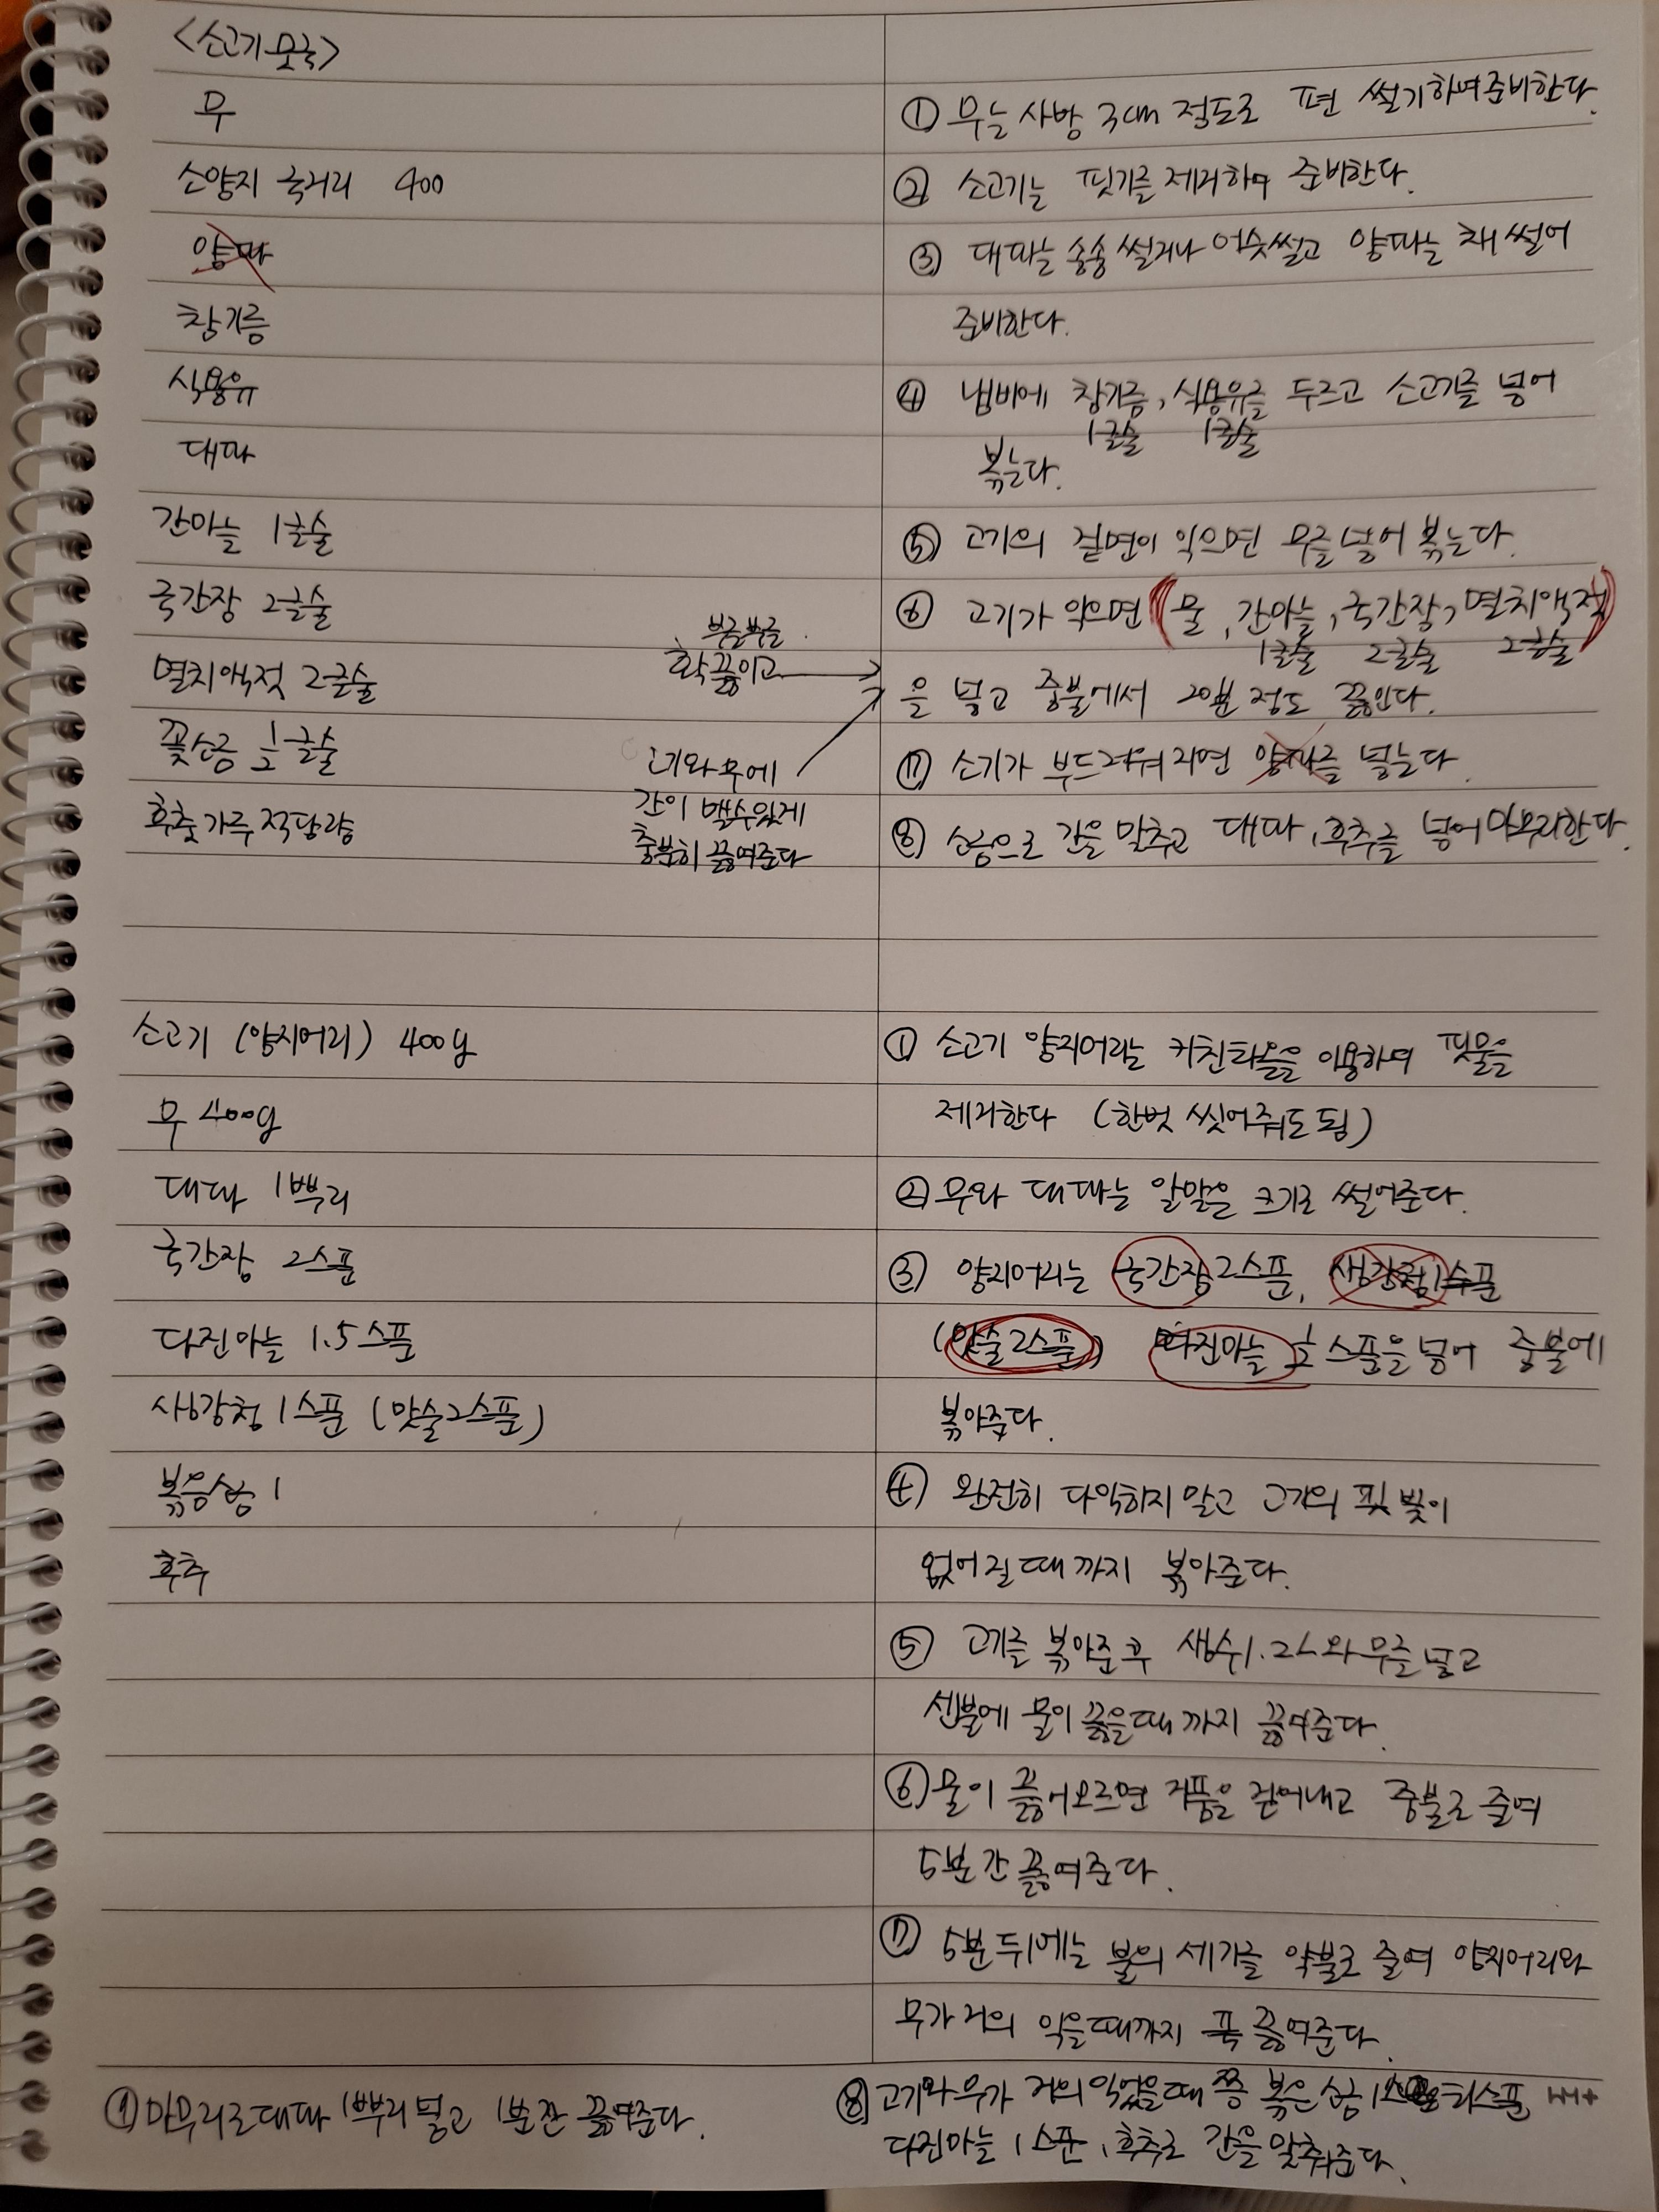 <소고기 뭇국>
무
소양지 국거리 400
양파
참기름
식용유
대파
간마늘 1큰술
국간장 2큰술
멸치액젓 2큰술
꽃소금 1/2큰술
후춧가루 적당량
① 무는 사방 3cm 정도로 편 썰기하여 준비한다.
② 소고기는 핏기를 제거하여 준비한다.
③ 대파는 송송 썰거나 어슷썰고 양파는 채 썰어
준비한다.
④ 냄비에 참기름, 식용유를 두르고 소고기를 넣어
1큰술 1큰술
볶는다.
⑤ 고기의 겉면이 익으면 무를 넣어 볶는다.
⑥ 고기가 익으면 (물, 간마늘, 국간장, 멸치액젓)
1큰술 2큰술 2큰술
을 넣고 중불에서 20분 정도 끓인다.
⑦ 소기가 부드러워지면 양파를 넣는다.
⑧ 소금으로 간을 맞추고 대파, 후추를 넣어 마무리한다.
부글부글
확 끓이고
고기와 무에
간이 밸수있게
충분히 끓여준다
소고기 (양지머리) 400g
무 400g
대파 1뿌리
국간장 2스푼
다진마늘 1.5스푼
생강청 1스푼 (맛술2스푼)
볶음소금 1
후추
① 소고기 양지머리는 키친타올을 이용하여 핏물을
제거한다 (한번 씻어줘도 됨)
② 무와 대파는 알맞은 크기로 썰어준다.
③ 양지머리는 국간장 2스푼, 생강청1스푼
(맛술2스푼) 다진마늘 1/2 스푼을 넣어 중불에
볶아준다.
④ 완전히 다익히지 말고 고기의 핏 빛이
없어질때까지 볶아준다.
⑤ 고기를 볶아준 후 생수1.2L와 무를 넣고
센불에 물이 끓을때까지 끓여준다.
⑥ 물이 끓어오르면 거품을 걷어내고 중불로 줄여
5분간 끓여준다.
⑦ 5분 뒤에는 불의 세기를 약불로 줄여 양지머리와
무가 거의 익을때까지 푹 끓여준다.
⑧ 고기와 무가 거의 익었을때 쯤 볶은 소금 1 티스푼
다진마늘 1스푼, 후추로 간을 맞춰준다.
⑨ 마무리로 대파 1뿌리 넣고 1분간 끓여준다.